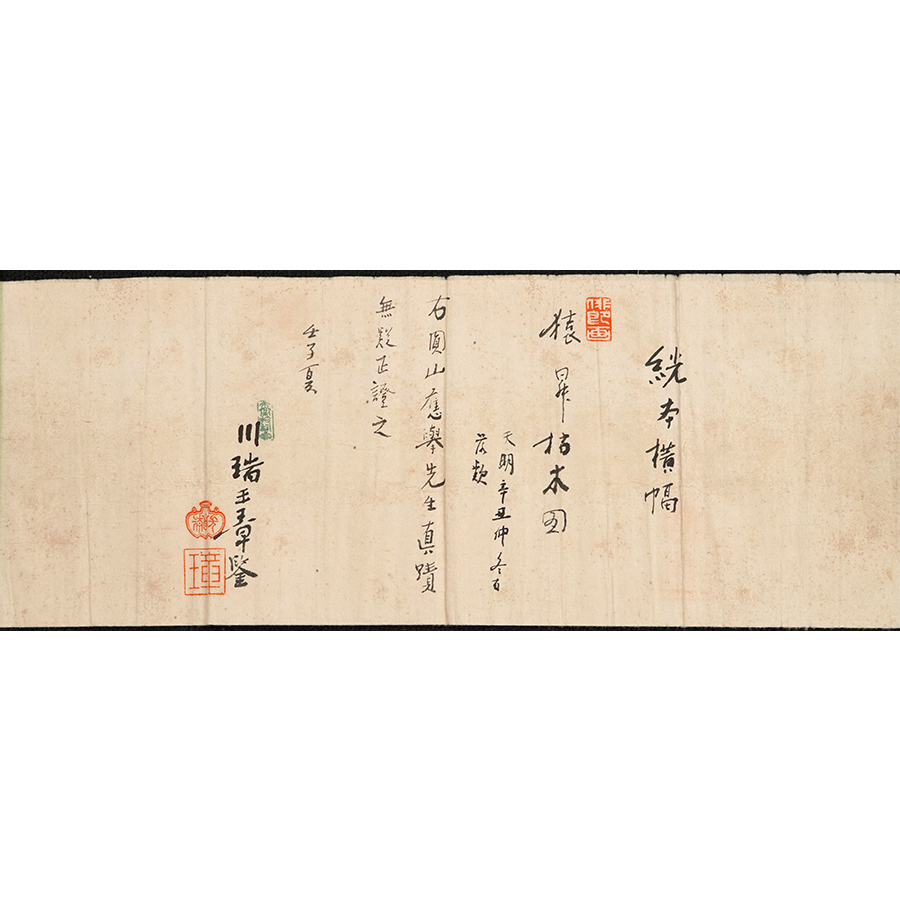 絖本横幅
猿昇枯木図
天明辛丑仲冬有
落款
右圓山應舉先生真蹟
無疑正證之
壬子夏
川瑞玉章鑒
章